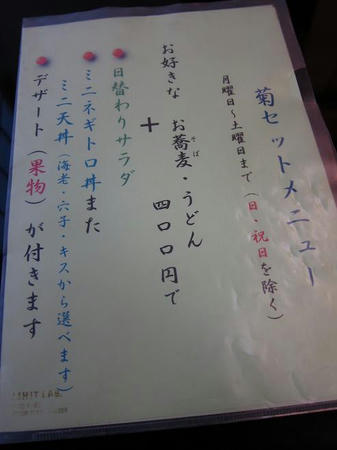 菊セットメニュー
月曜日～土曜日まで（日・祝日を除く）
お好きな　お蕎麦・うどん
そば
＋　四〇〇円で
日替わりサラダ
ミニネギトロ丼また
ミニ天丼（海老・穴子・キスから選べます）
デザート（果物）が付きます